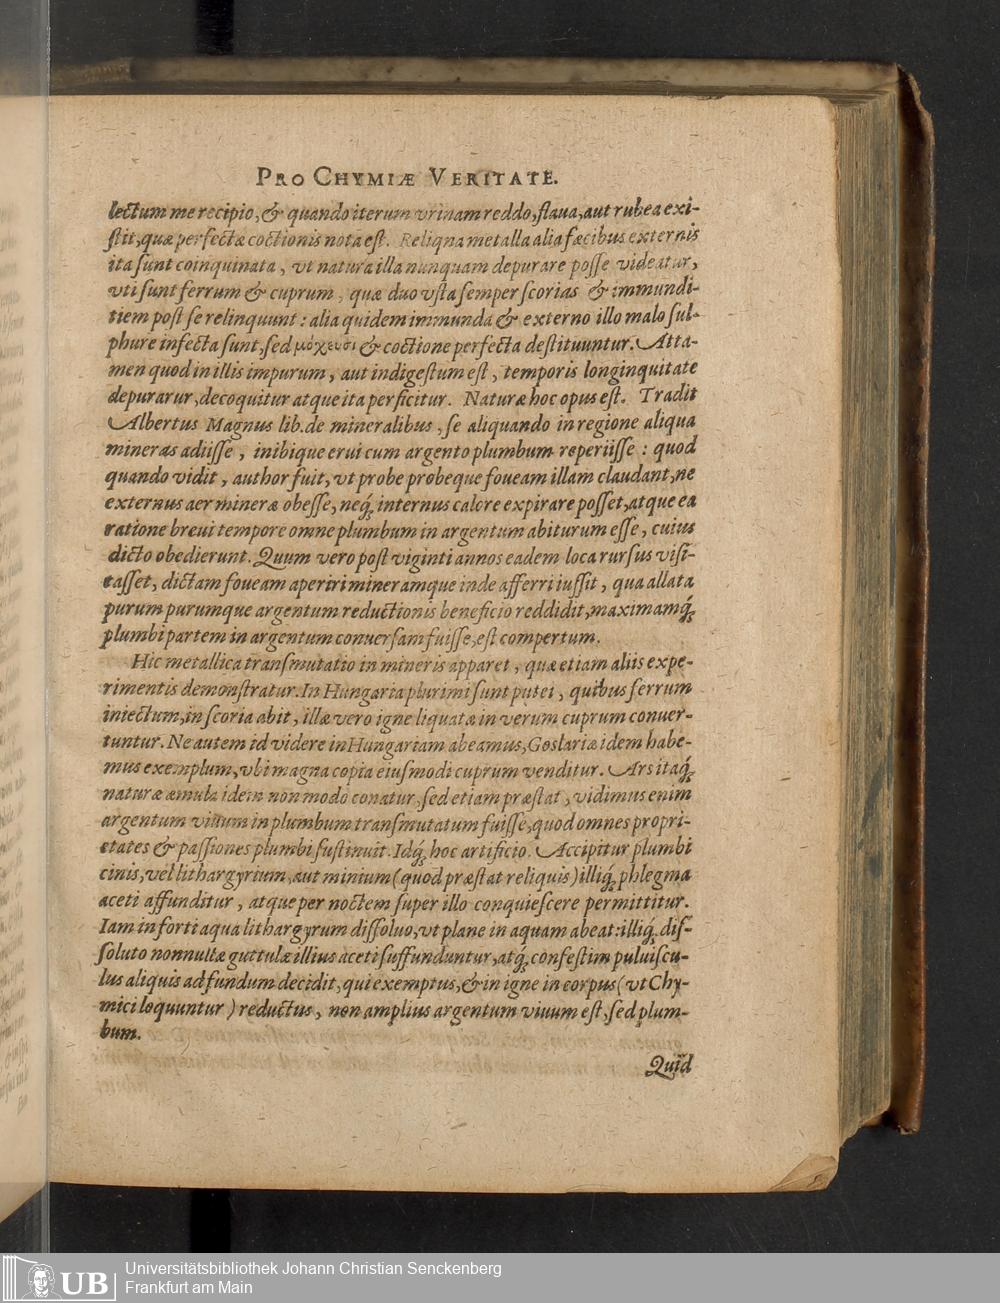 PRO CHYMIÆ VERITATE.
lectum me recipio, & quando iterum vrinam reddo, flaua, aut rubea exi-
stit, quæ perfectæ coctionis nota est. Reliqua metalla alia fæcibus externis
ita sunt coinquinata, vt natura illa nunquam depurare posse videatur,
vti sunt ferrum & cuprum, quæ duo vsta semper scorias & immundi-
tiem post se relinquunt: alia quidem immunda & externo illo malo sul-
phure infecta sunt, sed μόχευσι & coctione perfecta destituuntur. Atta-
men quod in illis impurum, aut indigestum est, temporis longinquitate
depurarur, decoquitur atque ita perficitur. Naturæ hoc opus est. Tradit
Albertus Magnus lib. de mineralibus, se aliquando in regione aliqua
mineras adiisse, inibique erui cum argento plumbum reperiisse: quod
quando vidit, author fuit, vt probe probeque foueam illam claudant, ne
externus aer mineræ obesse, neq́; internus calore expirare posset, atque ea
ratione breui tempore omne plumbum in argentum abiturum esse, cuius
dicto obedierunt. Quum vero post viginti annos eadem loca rursus visi-
tasset, dictam foueam aperiri mineramque inde afferri iussit, qua allata
purum purumque argentum reductionis beneficio reddidit, maximamq́;
plumbi partem in argentum conuersam fuisse, est compertum.
Hic metallica transmutatio in mineris apparet, quæ etiam aliis expe-
rimentis demonstratur. In Hungaria plurimi sunt putei, quibus ferrum
iniectum, in scoria abit, illæ vero igne liquatæ in verum cuprum conuer-
tuntur. Ne autem id videre in Hungariam abeamus, Goslariæ idem habe-
mus exemplum, vbi magna copia eiusmodi cuprum venditur. Ars itaq́;
naturæ æmula idem non modo conatur, sed etiam præstat, vidimus enim
argentum viuum in plumbum transmutatum fuisse, quod omnes propri-
etates & passiones plumbi sustinuit. Idq́; hoc artificio. Accipitur plumbi
cinis, vel lithargyrium, aut minium (quod præstat reliquis) illiq́; phlegma
aceti affunditur, atque per noctem super illo conquiescere permittitur.
Iam in forti aqua lithargyrum dissoluo, vt plane in aquam abeat: illiq́; dis-
soluto nonnullæ guttulæ illius aceti suffunduntur, atq́; confestim puluiscu-
lus aliquis ad fundum decidit, qui exemptus, & in igne in corpus (vt Chy-
mici loquuntur) reductus, non amplius argentum viuum est, sed plum-
bum.
Quid
UB
Universitätsbibliothek Johann Christian Senckenberg
Frankfurt am Main